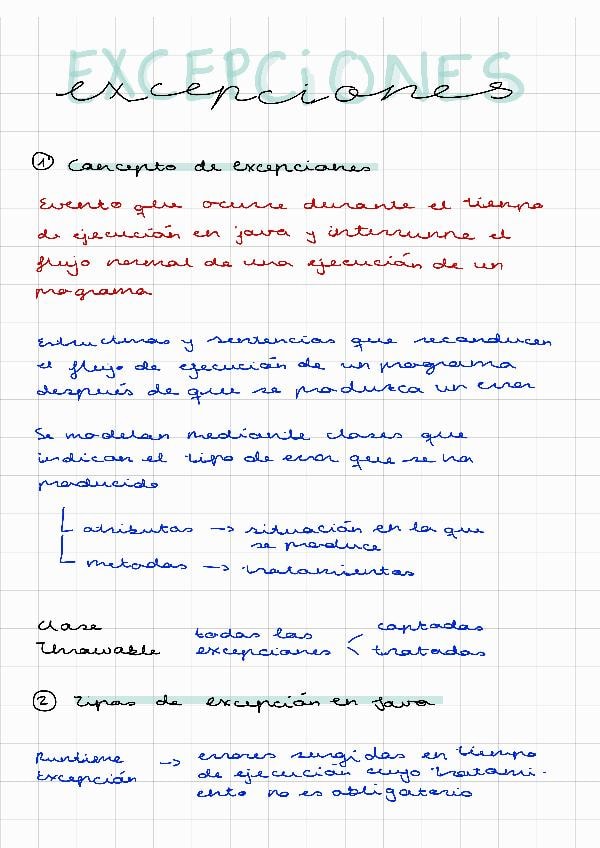 EXCEPCiONES
excepciones
① Concepto de excepciones
Evento que ocurre durante el tiempo
de ejecución en java y interrumpe el
flujo normal de una ejecución de un
programa
Estructuras y sentencias que reconducen
el flujo de ejecución de un programa
después de que se produzca un error
Se modelan mediante clases que
indican el tipo de error que se ha
producido
atributos -> situación en la que
se produce
metodos -> tratamientos
Clase
Throwable
todas las
excepciones <
captadas
tratadas
② Tipos de excepción en Java
Runtiene
Excepción
-> errores surgidos en tiempo
de ejecución cuyo tratami-
ento no es obligatorio